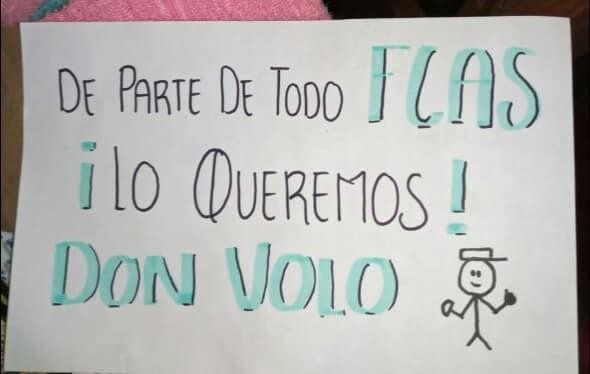 DE PARTE DE TODO FCAS
¡LO QUEREMOS!
DON VOLO